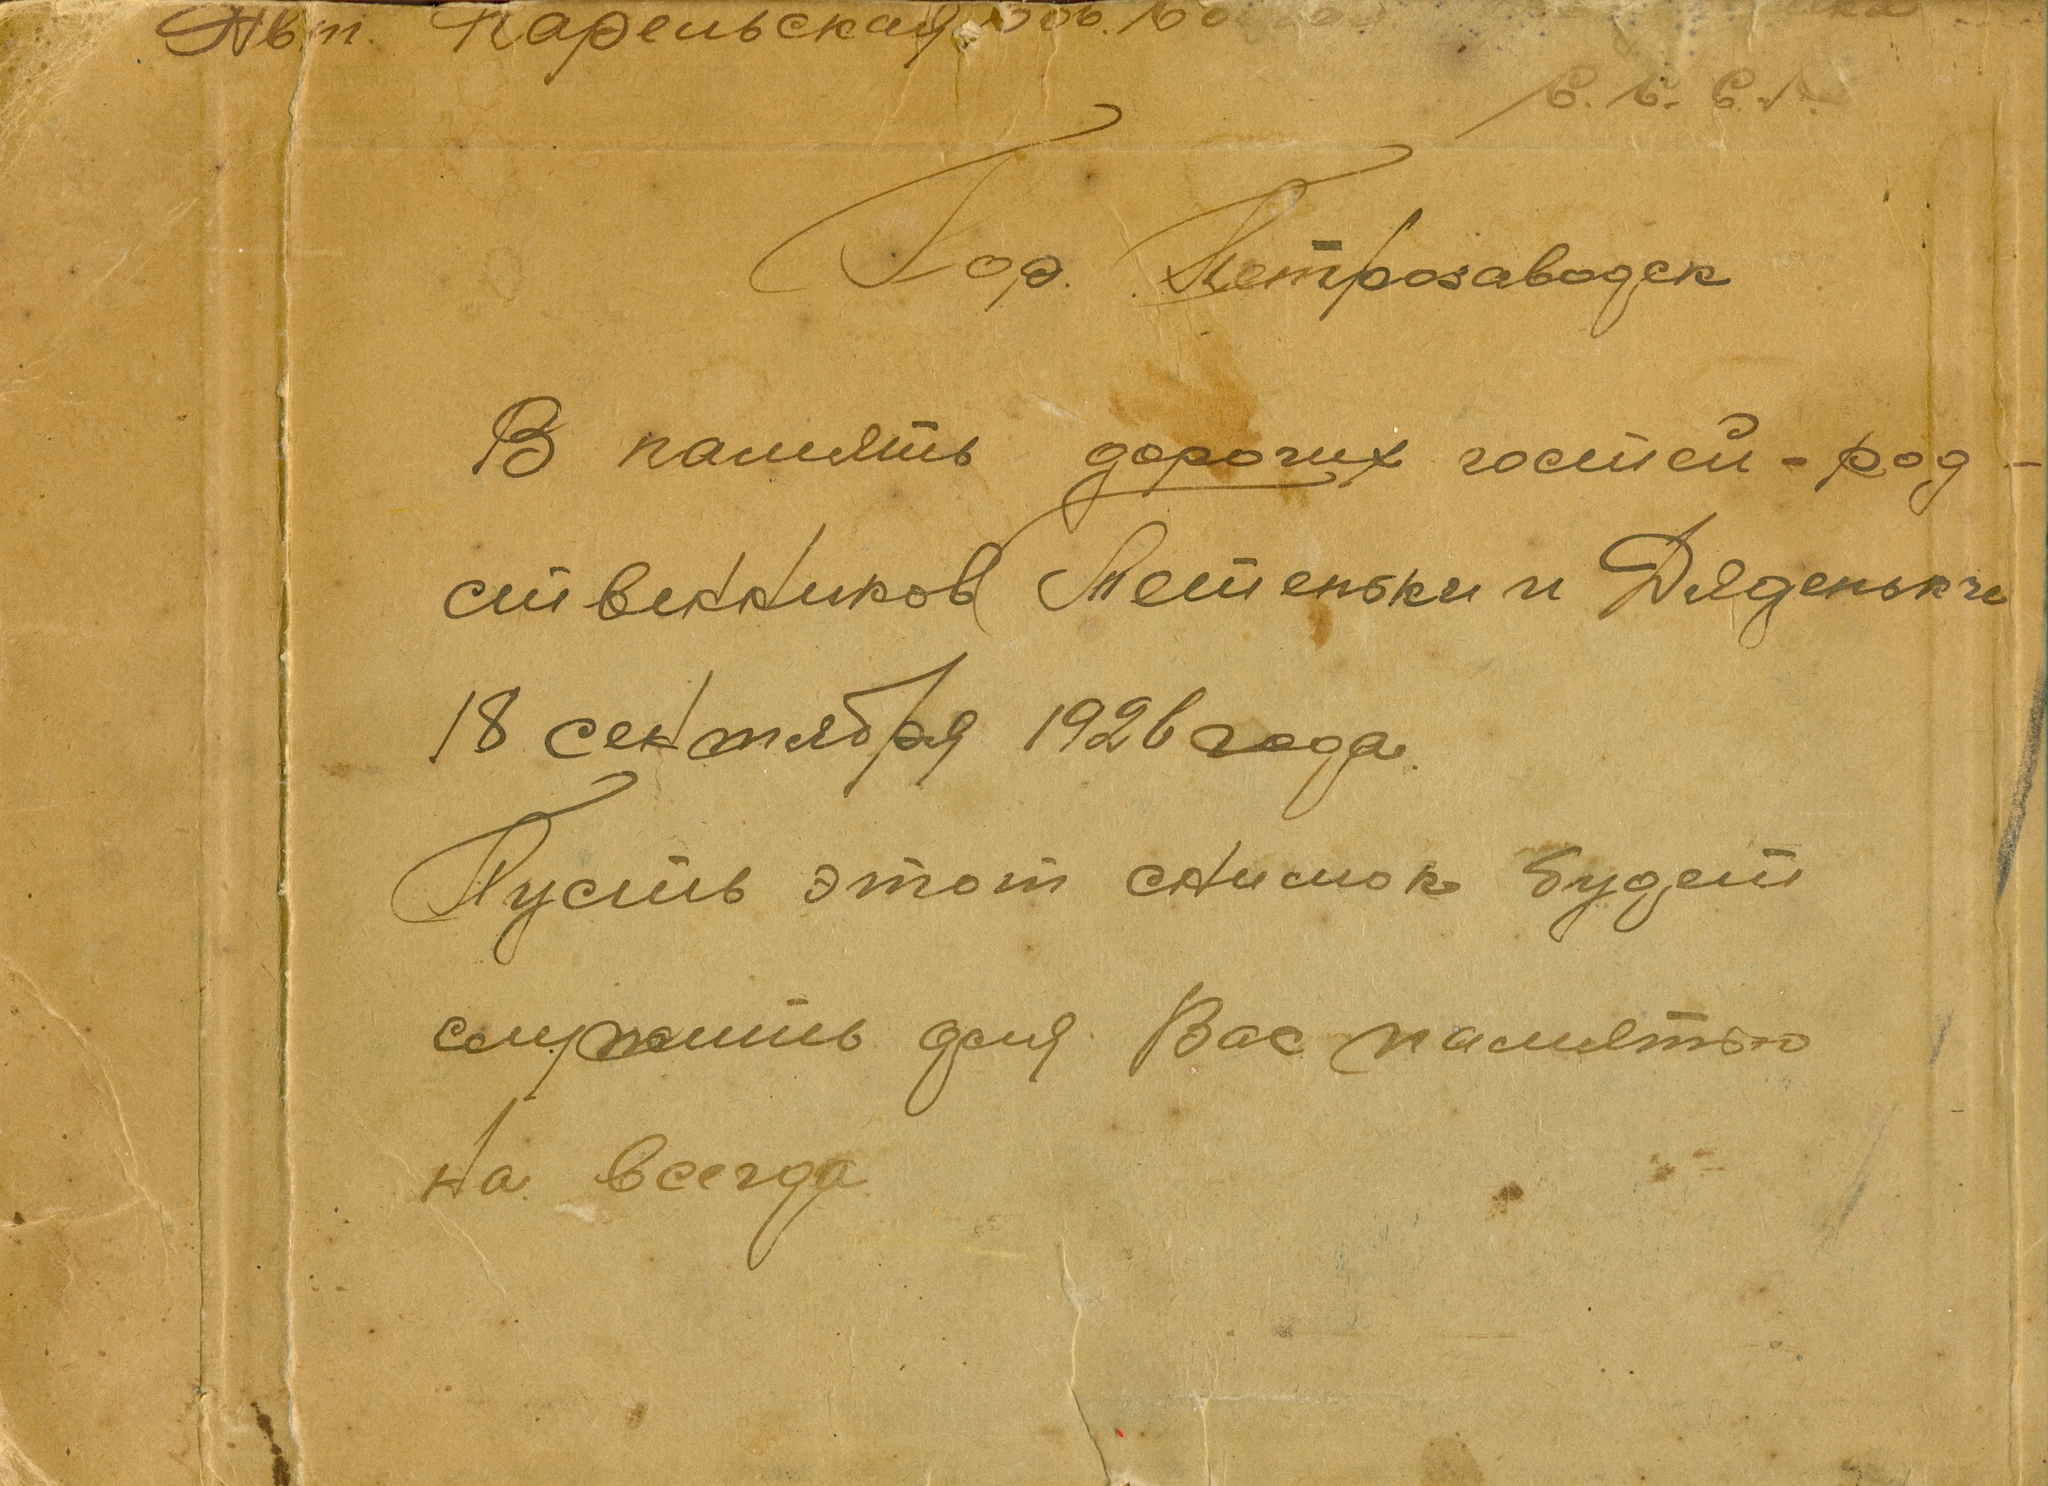 Авт. Карельская Сов.
С. С. С. Р.
Гор. Петрозаводск
В память дорогих гостей - род-
ственников Тетеньки и Дяденьки
18 сентября 1926 года.
Пусть этот снимок будет
служить для Вас памятью
на всегда